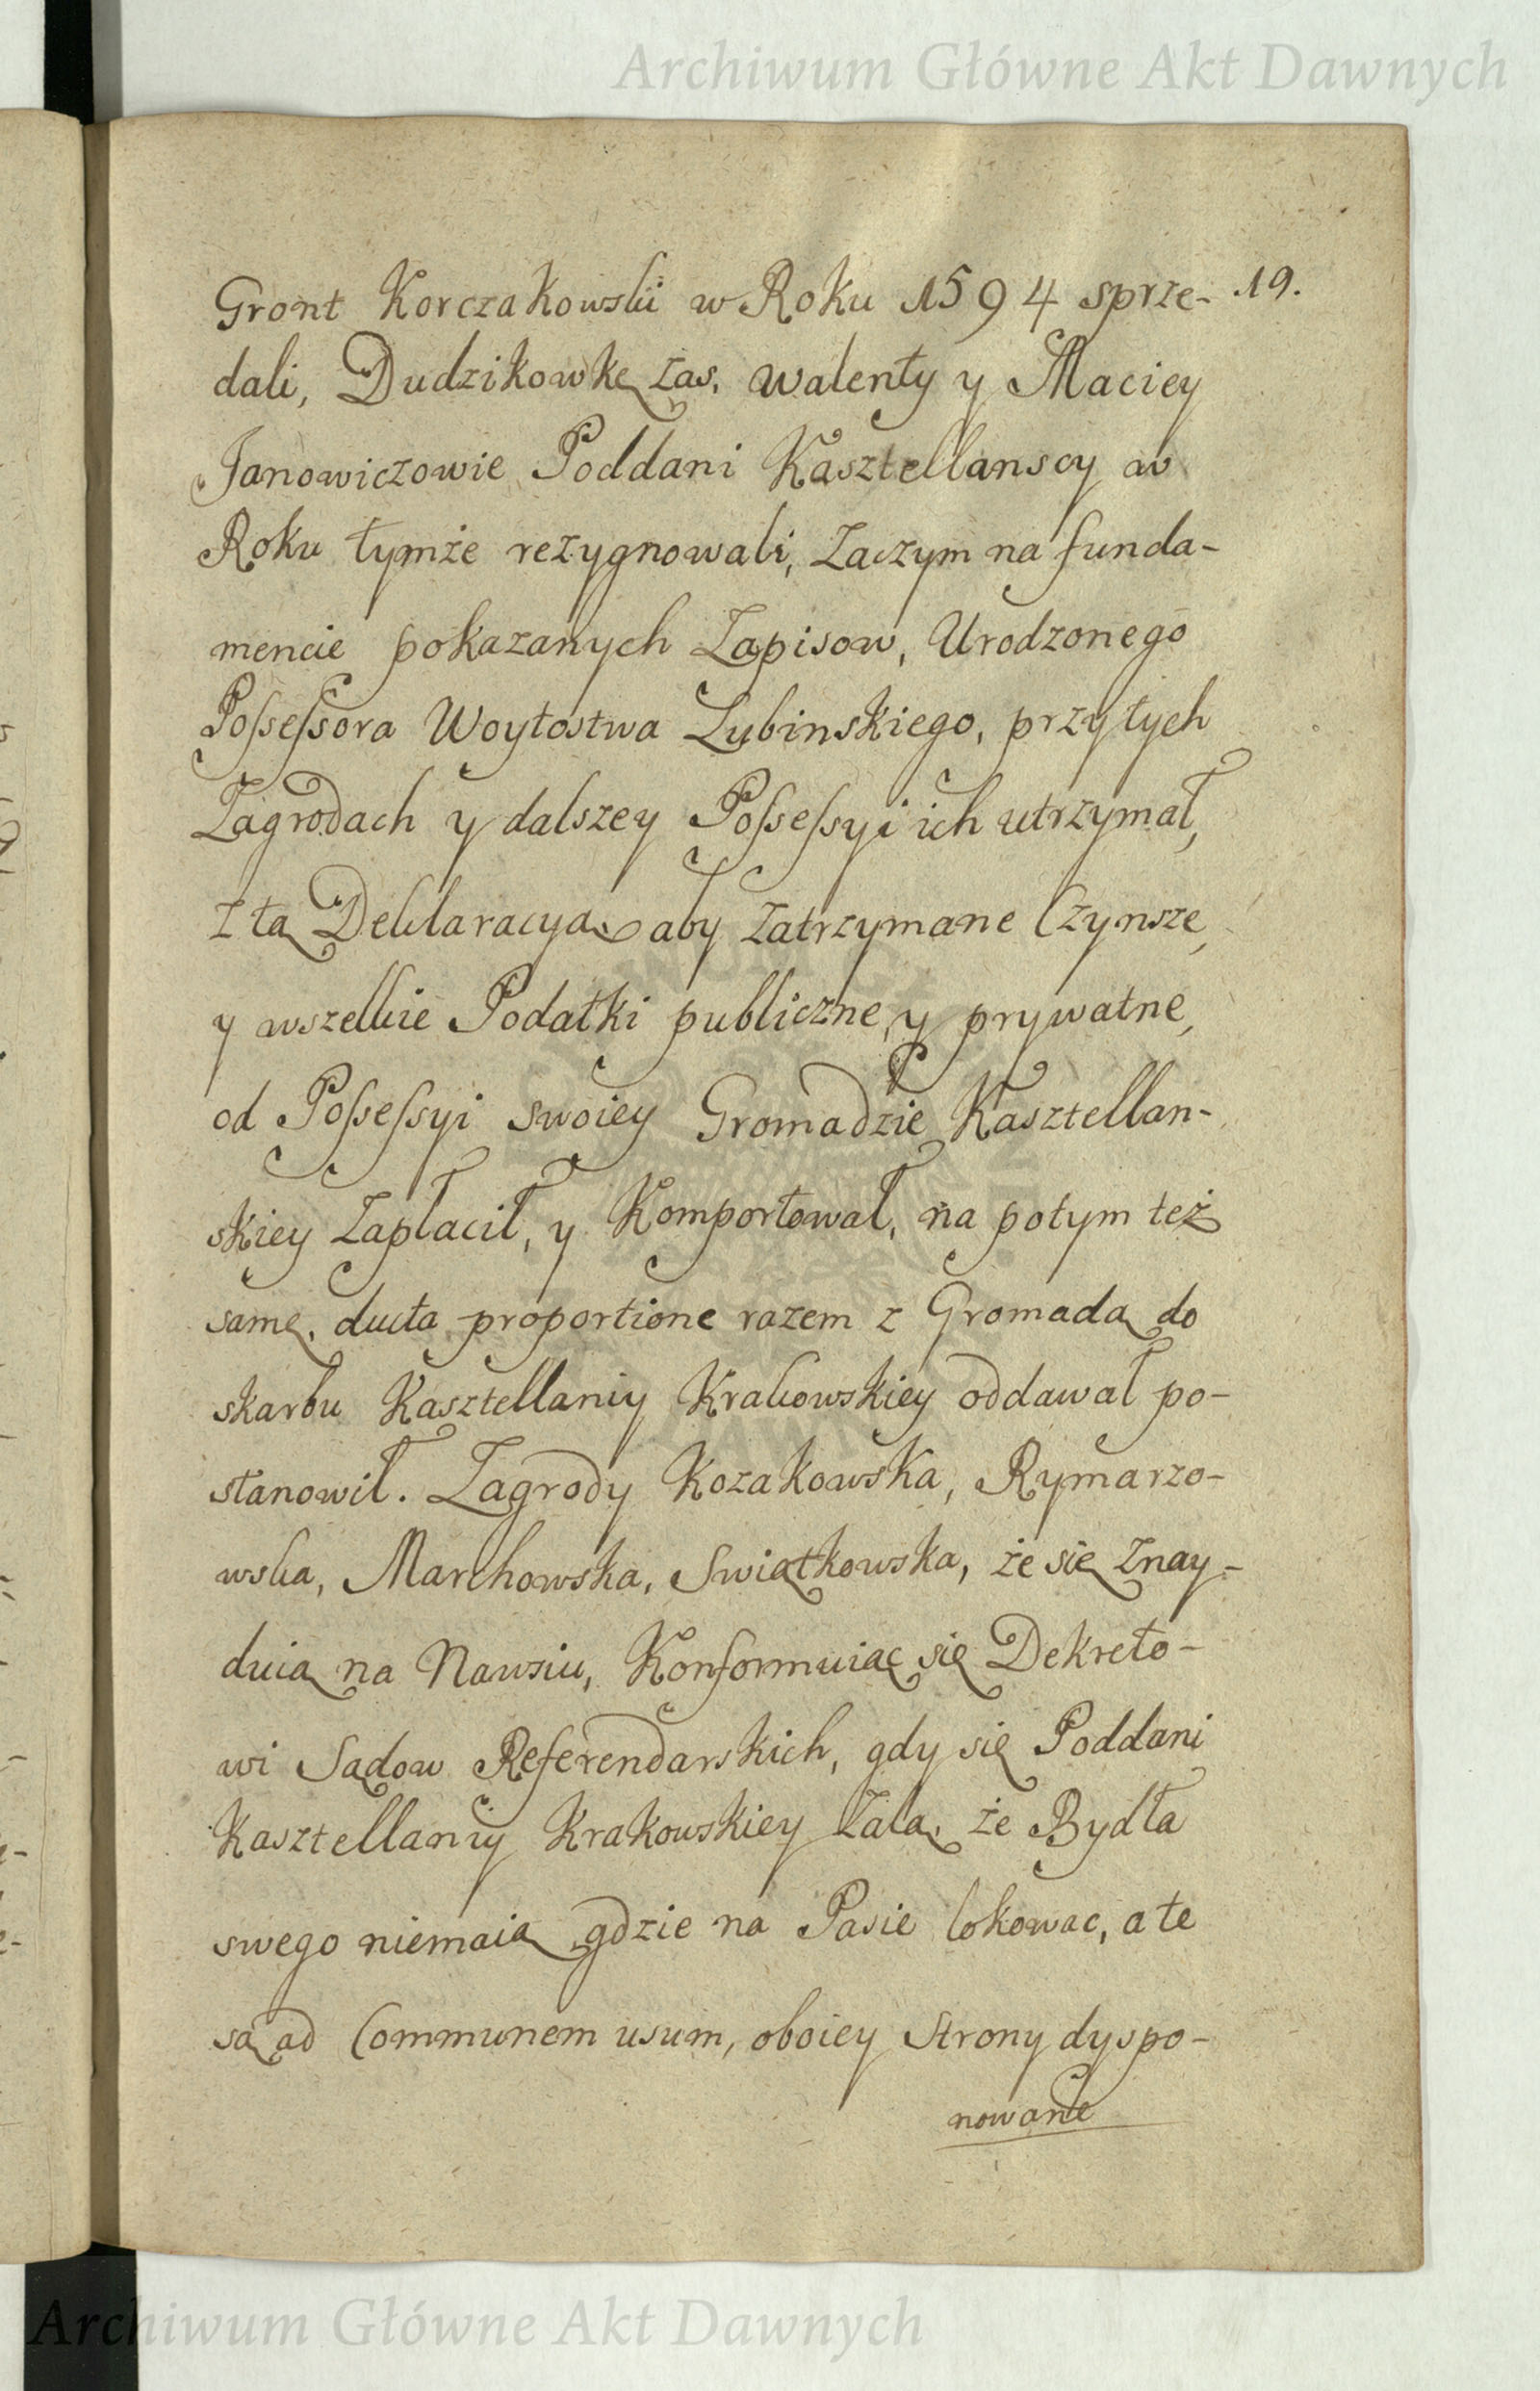 Archiwum Główne Akt Dawnych
19.
Gront Korczakowski w Roku 1594 sprze-
dali, Dudzikowkę zas. Walenty y Maciey
Janowiczowie Poddani Kasztellanscy w
Roku tymże rezygnowali, Zaczym na funda-
mencie pokazanych Zapisow, Urodzonego
Possessora Woytostwa Lubinskiego, przy tych
Zagrodach y dalszey Possessyi ich utrzymał,
z tą Deklaracyą, aby zatrzymane Czynsze,
y wszelkie Podatki publiczne, y prywatne,
od Possessyi swoiey Gromadzie Kasztellan-
skiey Zapłacił, y Komportował, na potym też
samę, ducta proportione razem z Gromadą do
skarbu Kasztellaniy Krakowskiey oddawał po-
stanowił. Zagrody Kozakowska, Rymarzo-
wska, Marchowska, Swiątkowska, że się znay-
duią na Nawsiu, Konformuiąc się Dekreto-
wi Sądow Referendarskich, gdy się Poddani
Kasztellaniy Krakowskiey żalą, że Bydła
swego niemaią gdzie na Pasie lokowac, a te
są ad Communem usum, oboiey Strony dyspo-
nowane
Archiwum Główne Akt Dawnych